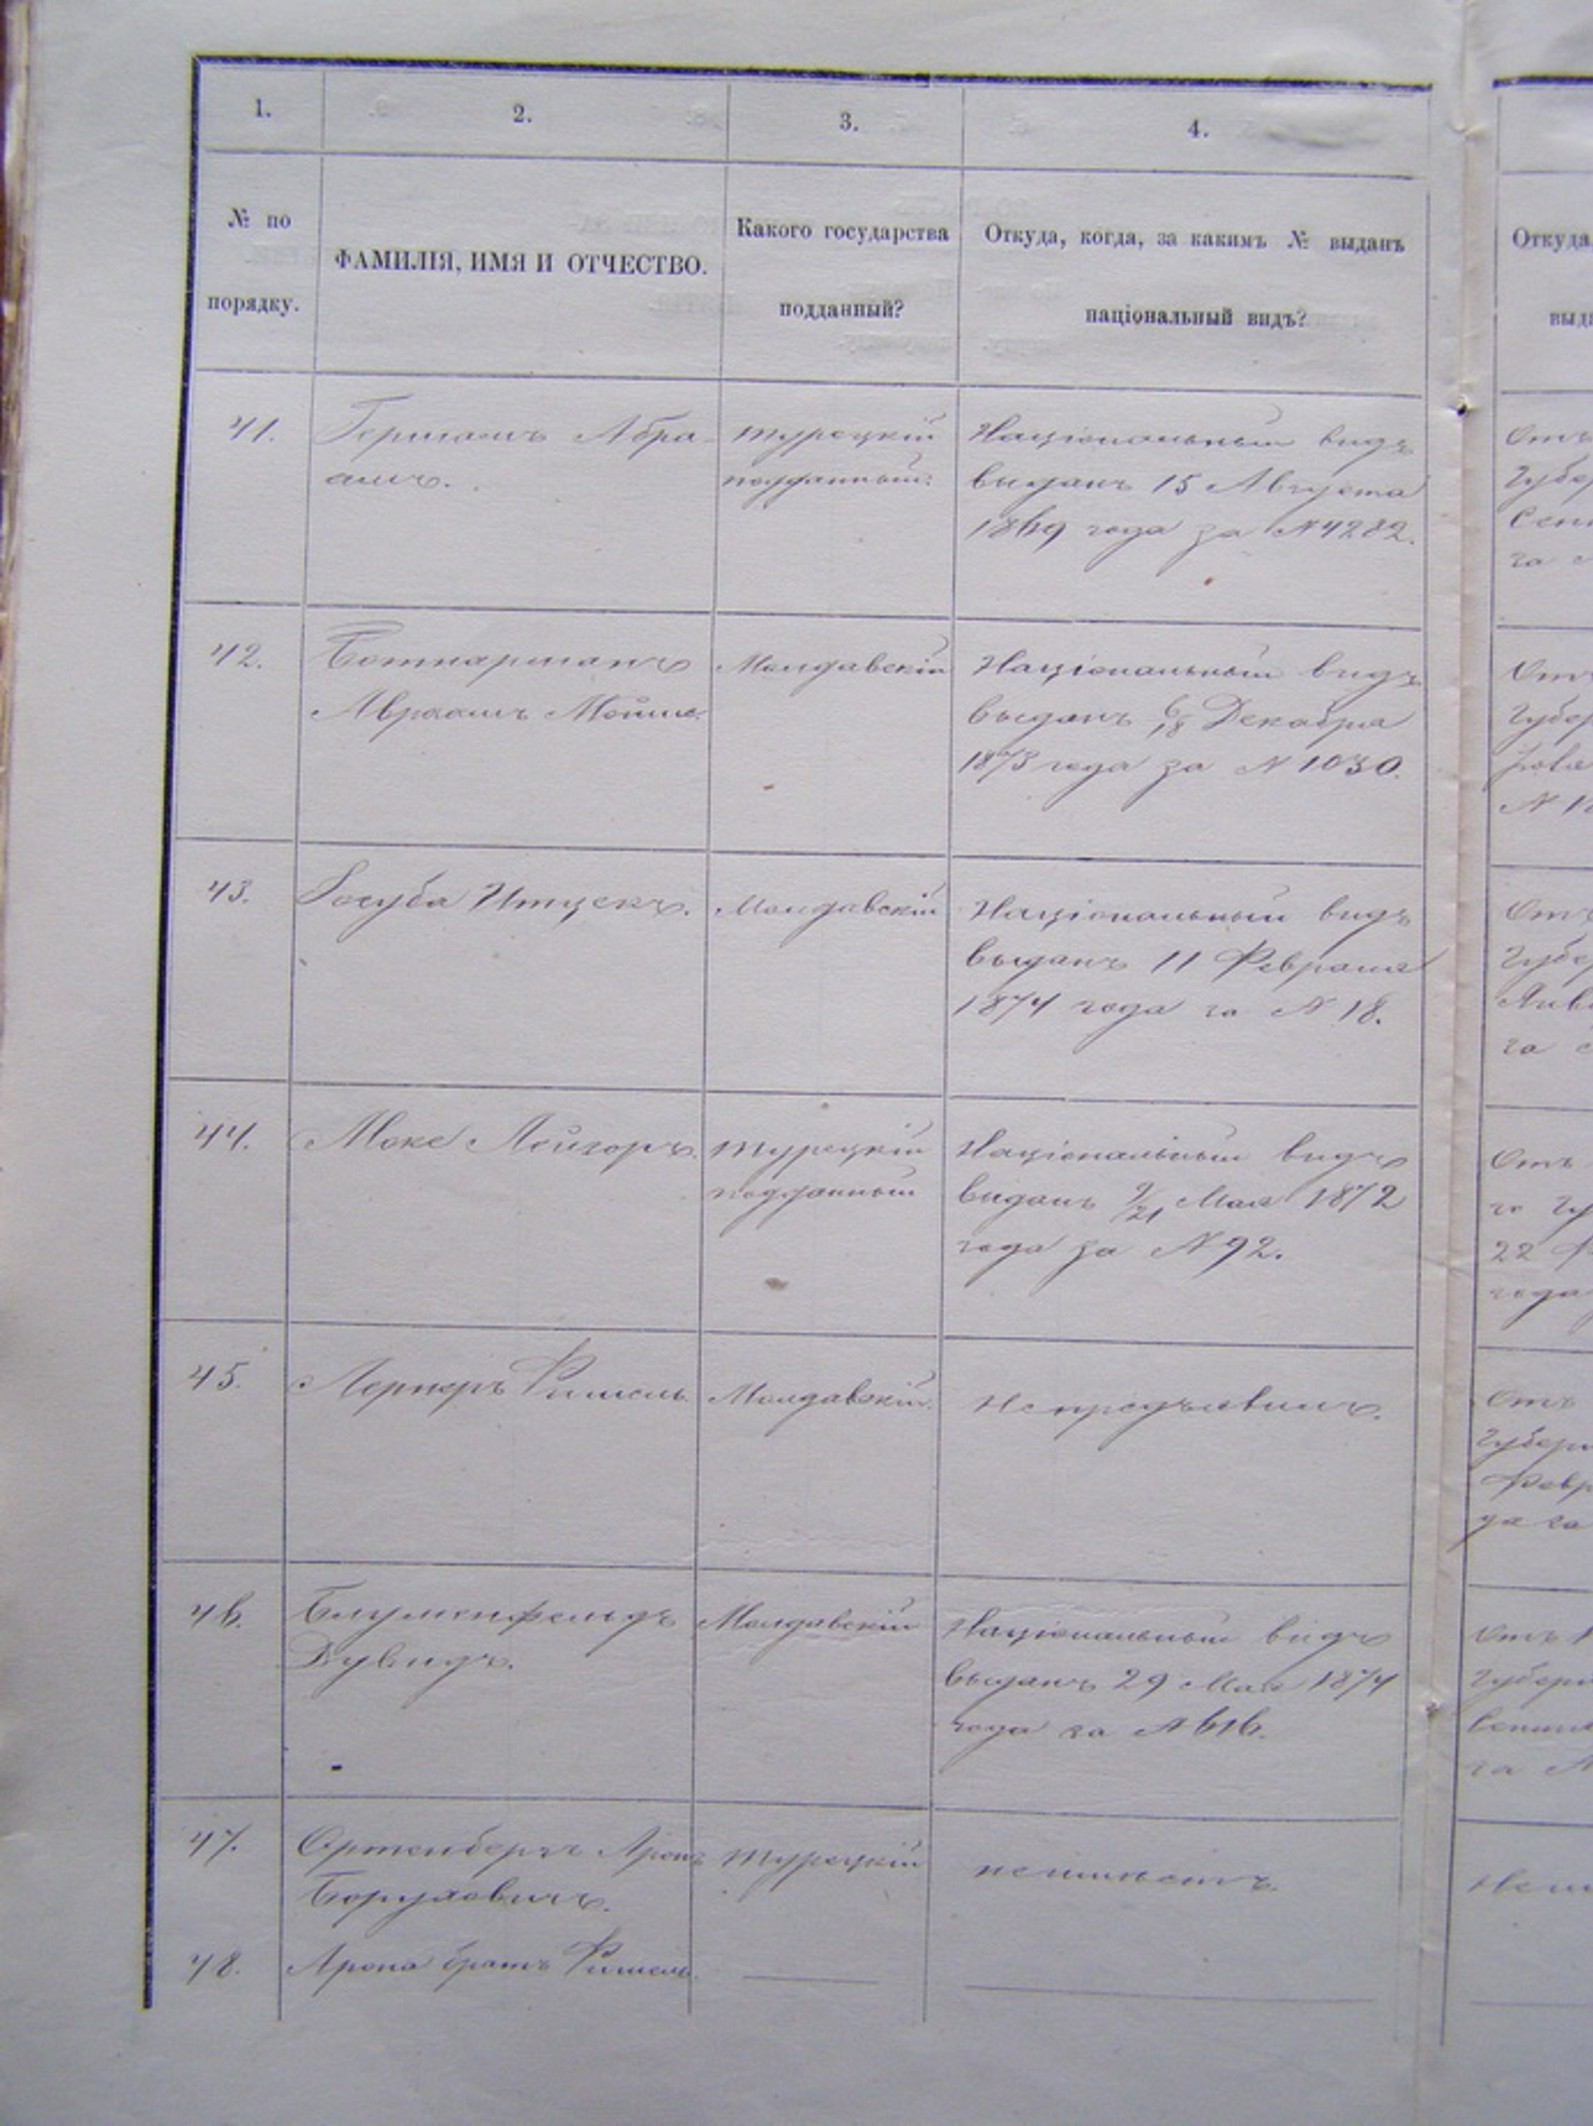 1. 2. 3. 4.
№ по порядку.
ФАМИЛІЯ, ИМЯ И ОТЧЕСТВО.
Какого государства
подданный?
Откуда, когда, за какимъ № выданъ
національный видъ?
Откуда
41. Германъ Абра-
амъ.
турецкій
подданный.
Національный видъ
выданъ 15 Августа
1869 года за N 4282.
42.
Авраамъ Мошко.
Молдавскій
Національный видъ
выданъ 6/18 Декабря
1873 года за N 1030.
43. Іосуба Ицекъ.
Молдавскій
Національный видъ
выданъ 11 Февраля
1874 года за N 18.
44. Маке Лейзоръ.
турецкій
подданный
Національный видъ
выданъ 9/21 Мая 1872
года за N 92.
45. Лернеръ Фишель
Молдавскій.
Непредъявилъ.
46. Блуменфельдъ
Дувидъ.
Молдавскій
Національный видъ
выданъ 29 Мая 1874
года за N 616.
47. Ортенбергъ Аронъ
Боруховичъ.
турецкій
неимѣетъ.
48. Арона братъ Фишель
Отъ
Губер
за
Отъ
Губер
N
Отъ
Губер
Янв
за
Отъ
22
года
Отъ
Губерн
Февр
да за
Отъ
Губерн
за